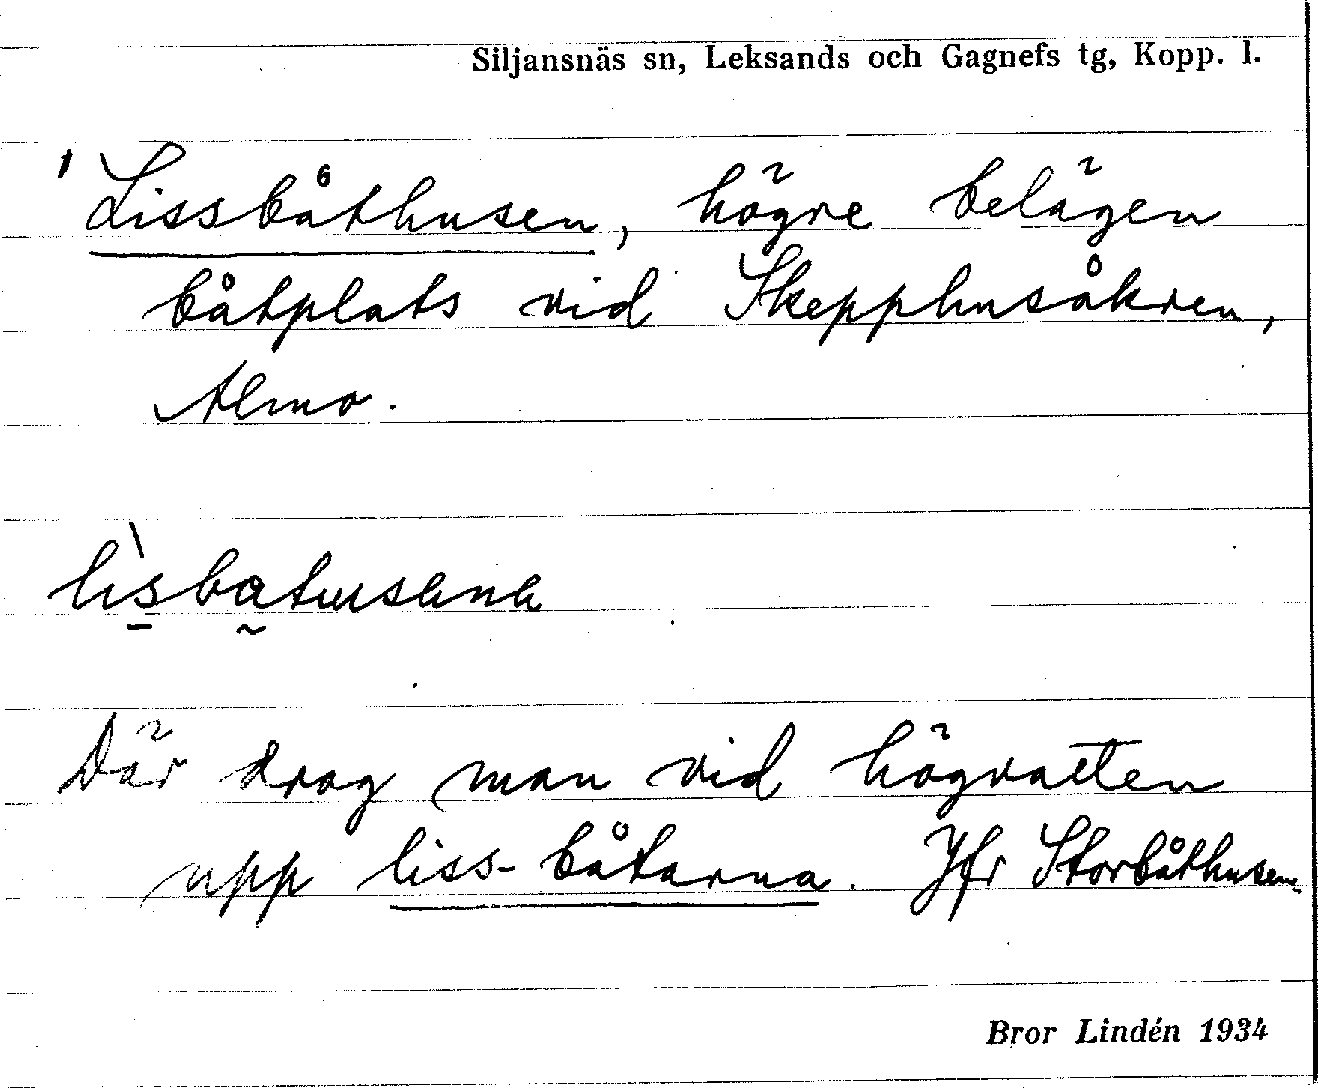 Siljansnäs sn, Leksands och Gagnefs tg, Kopp. l.
'Lissbåthusen, högre belägen
båtplats vid Skepphusåkren,
Almo.
lìsbatusɘnɘ
Där drog man vid högvatten
upp liss-båtarna. Jfr Storbåthusen.
Bror Lindén 1934